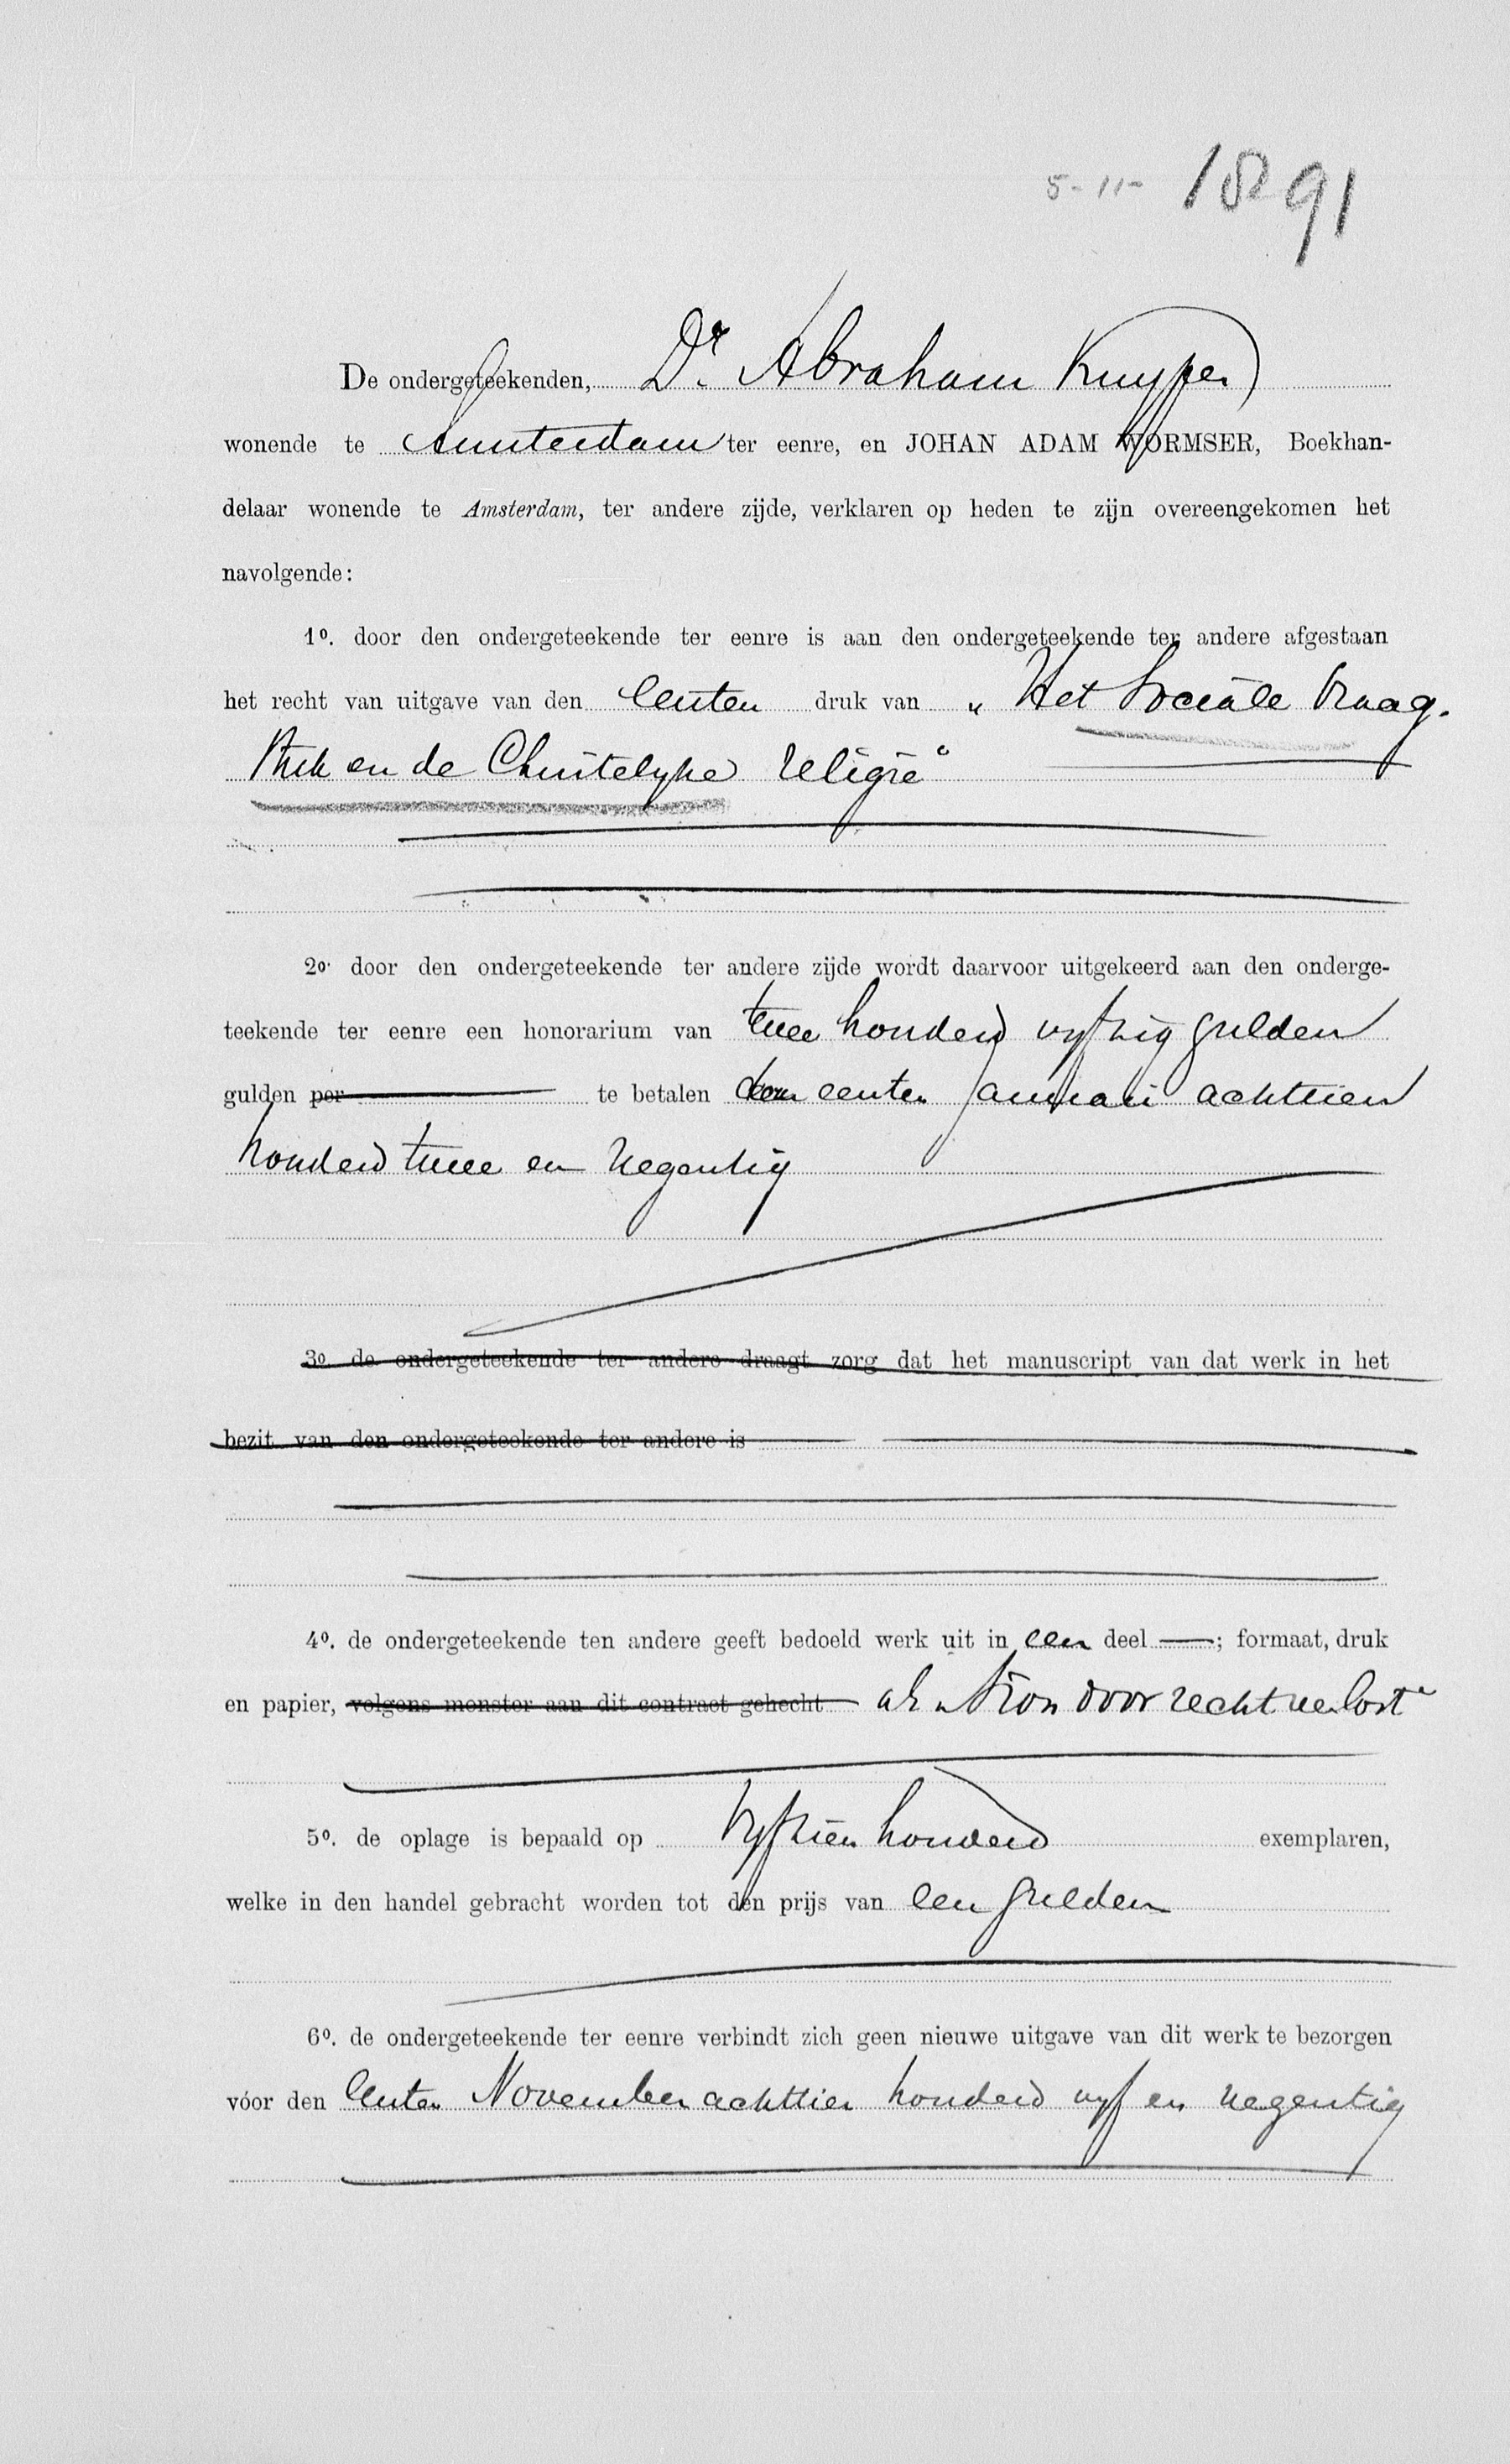 5-11- 1891
De ondergeteekenden, Dr. Abraham Kuyper
wonende te Amsterdam ter eenre, en JOHAN ADAM WORMSER, Boekhan-
delaar wonende te Amsterdam, ter andere zijde, verklaren op heden te zijn overeengekomen het
navolgende:
1o. door den ondergeteekende ter eenre is aan den ondergeteekende ter andere afgestaan
het recht van uitgave van den eersten druk van „Het Sociale Vraag-
stuk en de Christelyke religie"
2o. door den ondergeteekende ter andere zijde wordt daarvoor uitgekeerd aan den onderge-
teekende ter eenre een honorarium van twee honderd vyftig gulden
gulden per te betalen den eersten Januari achttien
honderd twee en negentig
3o. de ondergeteekende ter andere draagt zorg dat het manuscript van dat werk in het
bezit van den ondergeteekende ter andere is
4o. de ondergeteekende ten andere geeft bedoeld werk uit in een deel ; formaat, druk
en papier, volgens monster aan dit contract gehecht als „Sion door recht verlost"
5o. de oplage is bepaald op vyftien honderd exemplaren,
welke in den handel gebracht worden tot den prijs van een gulden
6o. de ondergeteekende ter eenre verbindt zich geen nieuwe uitgave van dit werk te bezorgen
vóor den eersten November achttien honderd vyf en negentig